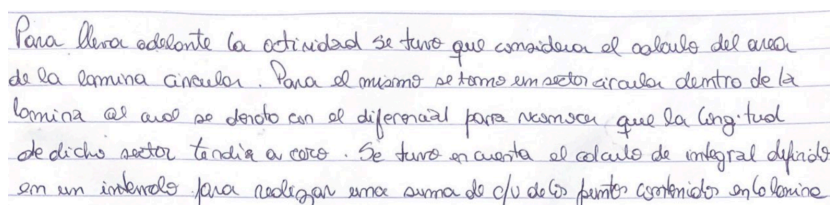 Para lleva adelante la actividad se tuvo que considera el calculo del area
de la lamina circular. Para el mismo se tomo un sector circular dentro de la
lamina al cual se denoto con el diferencial para reconocer que la longitud
de dicho sector tendia a cero. Se tuvo en cuenta el calculo de integral definida
en un intervalo para realizar una suma de c/u de los puntos contenidos en la lamina